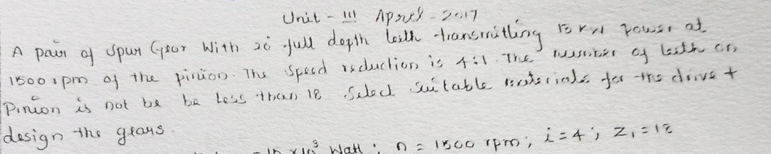 Unit - III April - 2017
A pair of spur Gear with 20° full depth teeth transmitting 15 KW power at
1500 rpm of the pinion. The speed reduction is 4:1. The number of teeth on
Pinion is not be be less than 18 Select suitable materials for the drive +
design the gears.
Watt ; n = 1500 rpm ; i = 4 ; Z₁ = 18